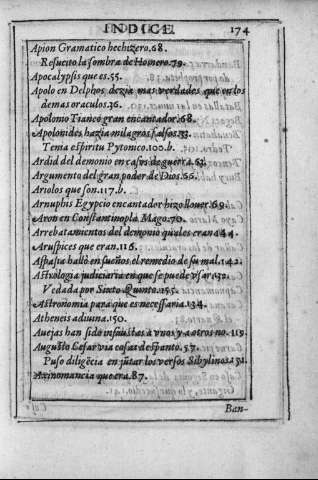 INDICE 174
Apion Gramatico hechizero.68.
Resucito la sombra de Homero.79.
Apocalypsis que es.55.
Apolo en Delphos dezia mas verdades que en los
demas oraculos.36.
Apolonio Tianeo gran encantador.68.
Apolonides hazia milagros falsos.33.
Tema espiritu Pytonico.100.b.
Ardid del demonio en casos de guerra.63.
Argumento del gran poder de Dios.66.
Ariolos que son.117.b.
Arnuphis Egypcio encantador hizo llouer 69.
Aron en Constantinopla Mago.70.
Arrebatamientos del demonio quales eran 144.
Aruspices que eran.116.
Aspasia hallò en sueños el remedio de su mal.142.
Astrologia judiciaria en que se puede vsar 132.
Vedada por Sixto Quinto.155.
Astronomia para que es necessaria.134.
Atheneis adiuina.150.
Auejas han sido infaustas à vnos y a otros no.119.
Augusto Cesar via cosas despanto.57.
Puso diligẽcia en jũtar los versos Sibylinos.151.
Axinomancia que era.87.
Ban-